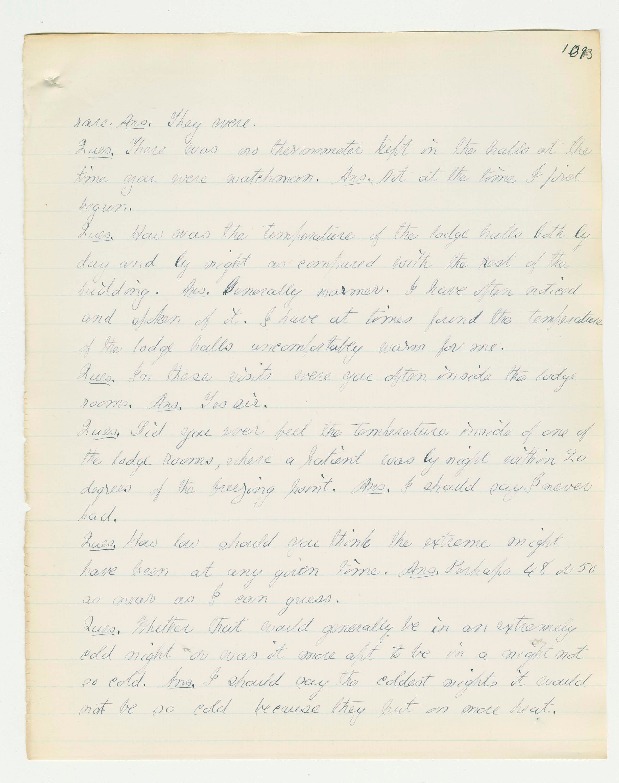 1093
rare. Ans. They were.
Ques. There was no thermometer kept in the halls at the
time you were watchman. Ans. Not at the time I first
begun.
Ques. How was the temperature of the lodge halls both by
day and by night as compared with the rest of the
building. Ans. Generally warmer. I have often noticed
and spoken of it. I have at times found the temperature
of the lodge halls uncomfortably warm for me.
Ques. In these visits were you often inside the lodge
rooms. Ans. Yes sir.
Ques. Did you ever feel the temperature inside of one of
the lodge rooms, where a patient was by night within 20
degrees of the freezing point. Ans. I should say I never
had.
Ques. How low should you think the extreme might
have been at any given time. Ans. Perhaps 48 or 50
as near as I can guess.
Ques. Whether that would generally be in an extremely
cold night or was it more apt to be in a night not
so cold. Ans. I should say the coldest nights it would
not be so cold because they put on more heat.